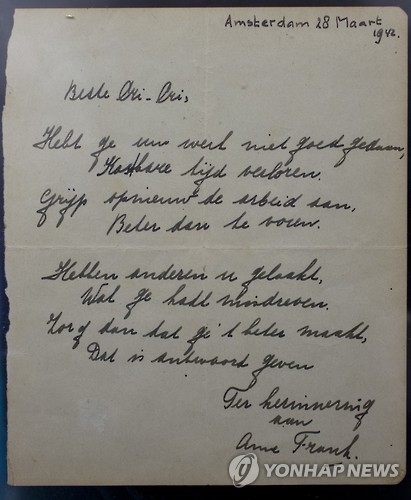 Amsterdam 28 Maart
1942.
Beste Cri-Cri,
Hebt ge uw werk niet goed gedaan,
Kostbare tijd verloren.
Grijp opnieuw de arbeid aan,
Beter dan te voren.
Hebben anderen u gelaakt,
Wat ge hadt misdreven.
Zorg dan dat ge 't beter maakt,
Dat is antwoord geven
Ter herinnering
aan
Anne Frank.
YONHAP NEWS